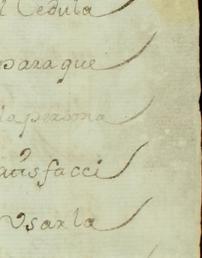 l Cedula
para que
la persona
atisfacci
Vsarla